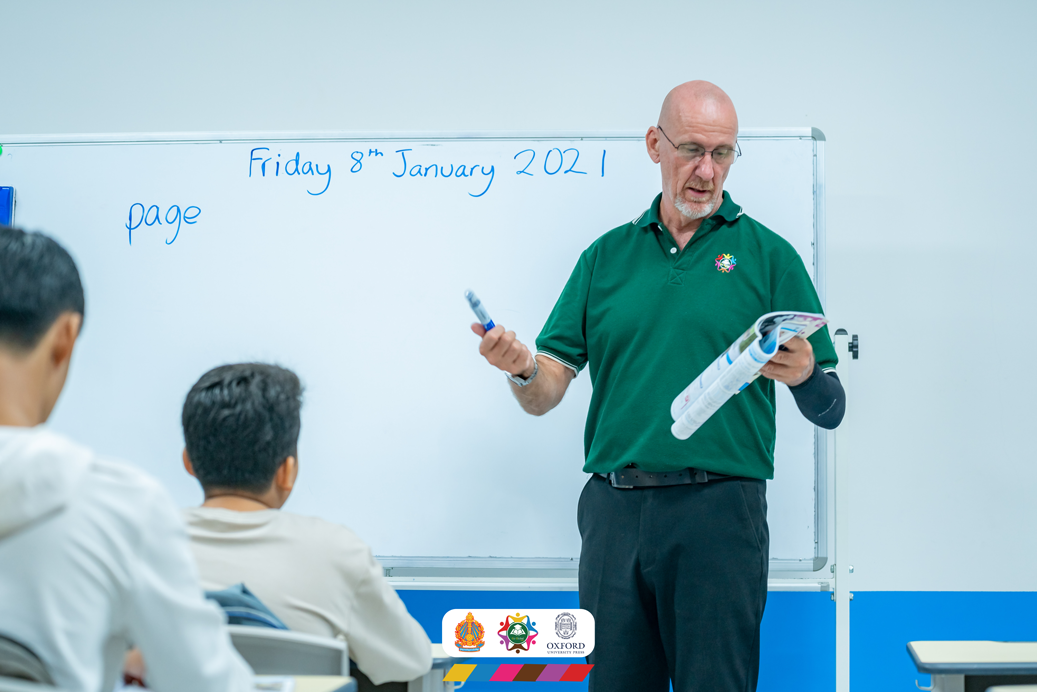 Friday 8th January 2021
page
OXFORD
UNIVERSITY PRESS